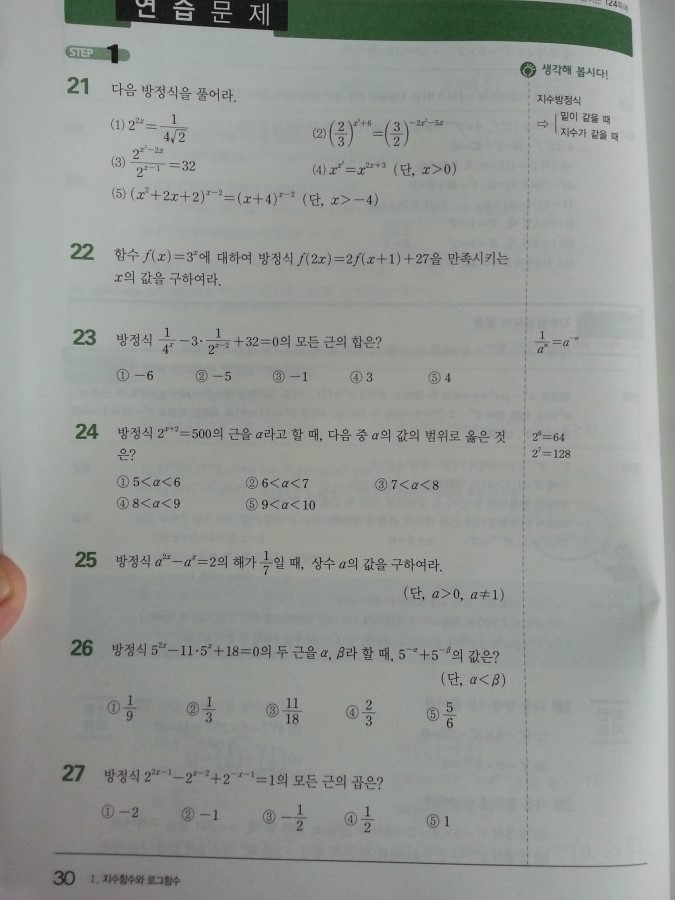 124쪽
연 습 문 제
STEP 1
생각해 봅시다!
21 다음 방정식을 풀어라.
지수방정식
⇨ 밑이 같을 때
지수가 같을 때
(1) 2^{2x} = 1/(4√2) (2) (2/3)^{x²+6} = (3/2)^{-2x²-5x}
(3) 2^{x²-2x}/2^{x-1} = 32 (4) x^{x²} = x^{2x+3} (단, x>0)
(5) (x²+2x+2)^{x-2} = (x+4)^{x-2} (단, x>-4)
22 함수 f(x)=3^x에 대하여 방정식 f(2x)=2f(x+1)+27을 만족시키는
x의 값을 구하여라.
23 방정식 1/4^x - 3·1/2^{x-2} + 32 = 0의 모든 근의 합은?
1/a^n = a^{-n}
① -6 ② -5 ③ -1 ④ 3 ⑤ 4
24 방정식 2^{x+2}=500의 근을 α라고 할 때, 다음 중 α의 값의 범위로 옳은 것
은?
2⁶=64
2⁷=128
① 5<α<6 ② 6<α<7 ③ 7<α<8
④ 8<α<9 ⑤ 9<α<10
25 방정식 a^{2x}-a^x=2의 해가 1/7일 때, 상수 a의 값을 구하여라.
(단, a>0, a≠1)
26 방정식 5^{2x}-11·5^x+18=0의 두 근을 α, β라 할 때, 5^{-α}+5^{-β}의 값은?
(단, α<β)
① 1/9 ② 1/3 ③ 11/18 ④ 2/3 ⑤ 5/6
27 방정식 2^{2x-1}-2^{x-2}+2^{-x-1}=1의 모든 근의 곱은?
① -2 ② -1 ③ -1/2 ④ 1/2 ⑤ 1
30 I. 지수함수와 로그함수